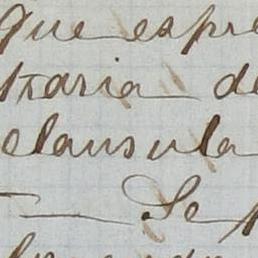 Que espre
taria de
clausula
— Se p